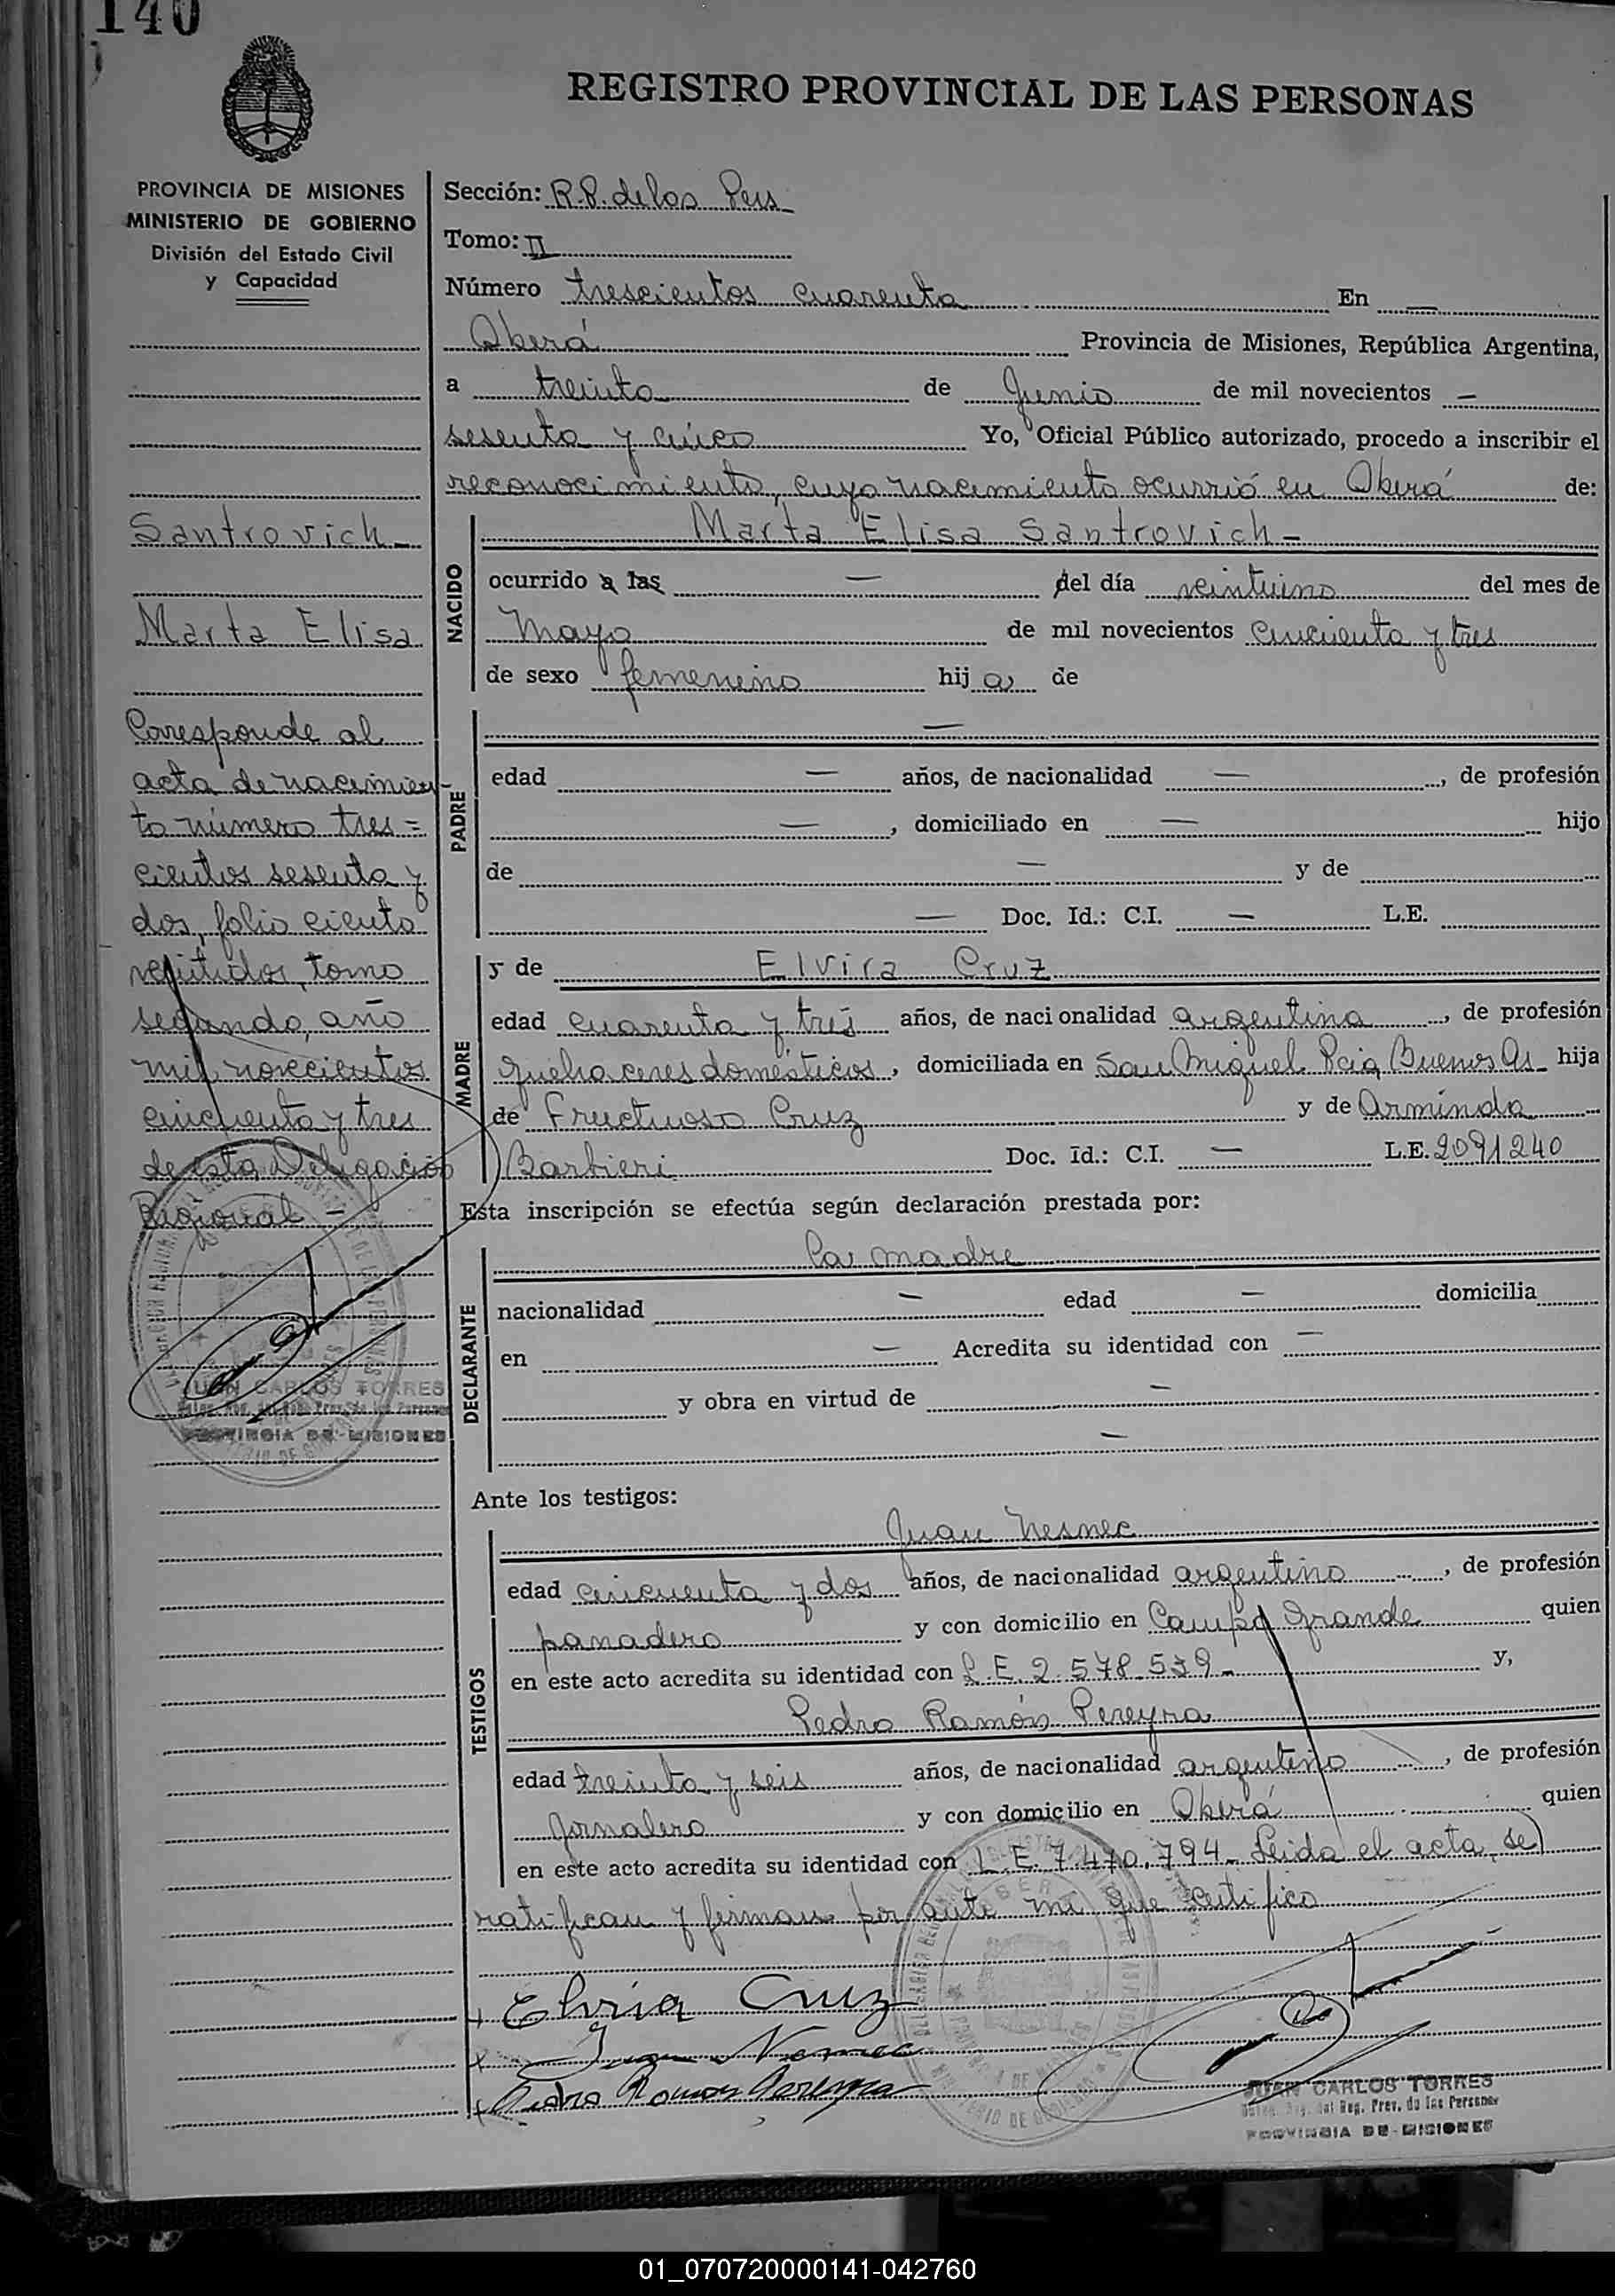 140
REGISTRO PROVINCIAL DE LAS PERSONAS
PROVINCIA DE MISIONES
MINISTERIO DE GOBIERNO
División del Estado Civil
y Capacidad
Santrovich -
Marta Elisa
Corresponde al
acta de nacimien-
to número tres=
cientos sesenta y
dos, folio ciento
veintidos, tomo
segundo, año
mil novecientos
cincuenta y tres
de esta Delegación
Regional -
JUAN CARLOS TORRES
PROVINCIA DE MISIONES
Sección: R.P. de las Pers -
Tomo: II
Número trescientos cuarenta En —
Oberá Provincia de Misiones, República Argentina,
a treinta de Junio de mil novecientos —
sesenta y cinco Yo, Oficial Público autorizado, procedo a inscribir el
reconocimiento, cuyo nacimiento ocurrió en Oberá de:
NACIDO
Marta Elisa Santrovich -
ocurrido a las — del día veintiuno del mes de
Mayo de mil novecientos cincuenta y tres
de sexo femenino hij a de
PADRE
—
edad — años, de nacionalidad — , de profesión
— , domiciliado en — hijo
de — y de
— Doc. Id.: C.I. — L.E.
MADRE
y de Elvira Cruz
edad cuarenta y tres años, de nacionalidad argentina , de profesión
quehaceres domésticos , domiciliada en San Miguel Pcia Buenos As - hija
de Fructuoso Cruz y de Arminda
Barbieri Doc. Id.: C.I. — L.E. 2091240
Esta inscripción se efectúa según declaración prestada por:
DECLARANTE
La madre
nacionalidad — edad — domicilia
en — Acredita su identidad con —
y obra en virtud de —
—
Ante los testigos:
TESTIGOS
Juan Nesmec
edad cincuenta y dos años, de nacionalidad argentino , de profesión
panadero y con domicilio en Campo Grande quien
en este acto acredita su identidad con L.E. 2.578.539 - y,
Pedro Ramón Pereyra
edad treinta y seis años, de nacionalidad argentino , de profesión
Jornalero y con domicilio en Oberá quien
en este acto acredita su identidad con L.E. 7.470.794 - Leida el acta, se
ratifican y firman por ante mi que certifico
x Elvria Cruz
x Juan Nemec
x Pedro Ramon Pereyra
JUAN CARLOS TORRES
Deleg. Reg. del Reg. Prov. de las Personas
PROVINCIA DE MISIONES
01_070720000141-042760